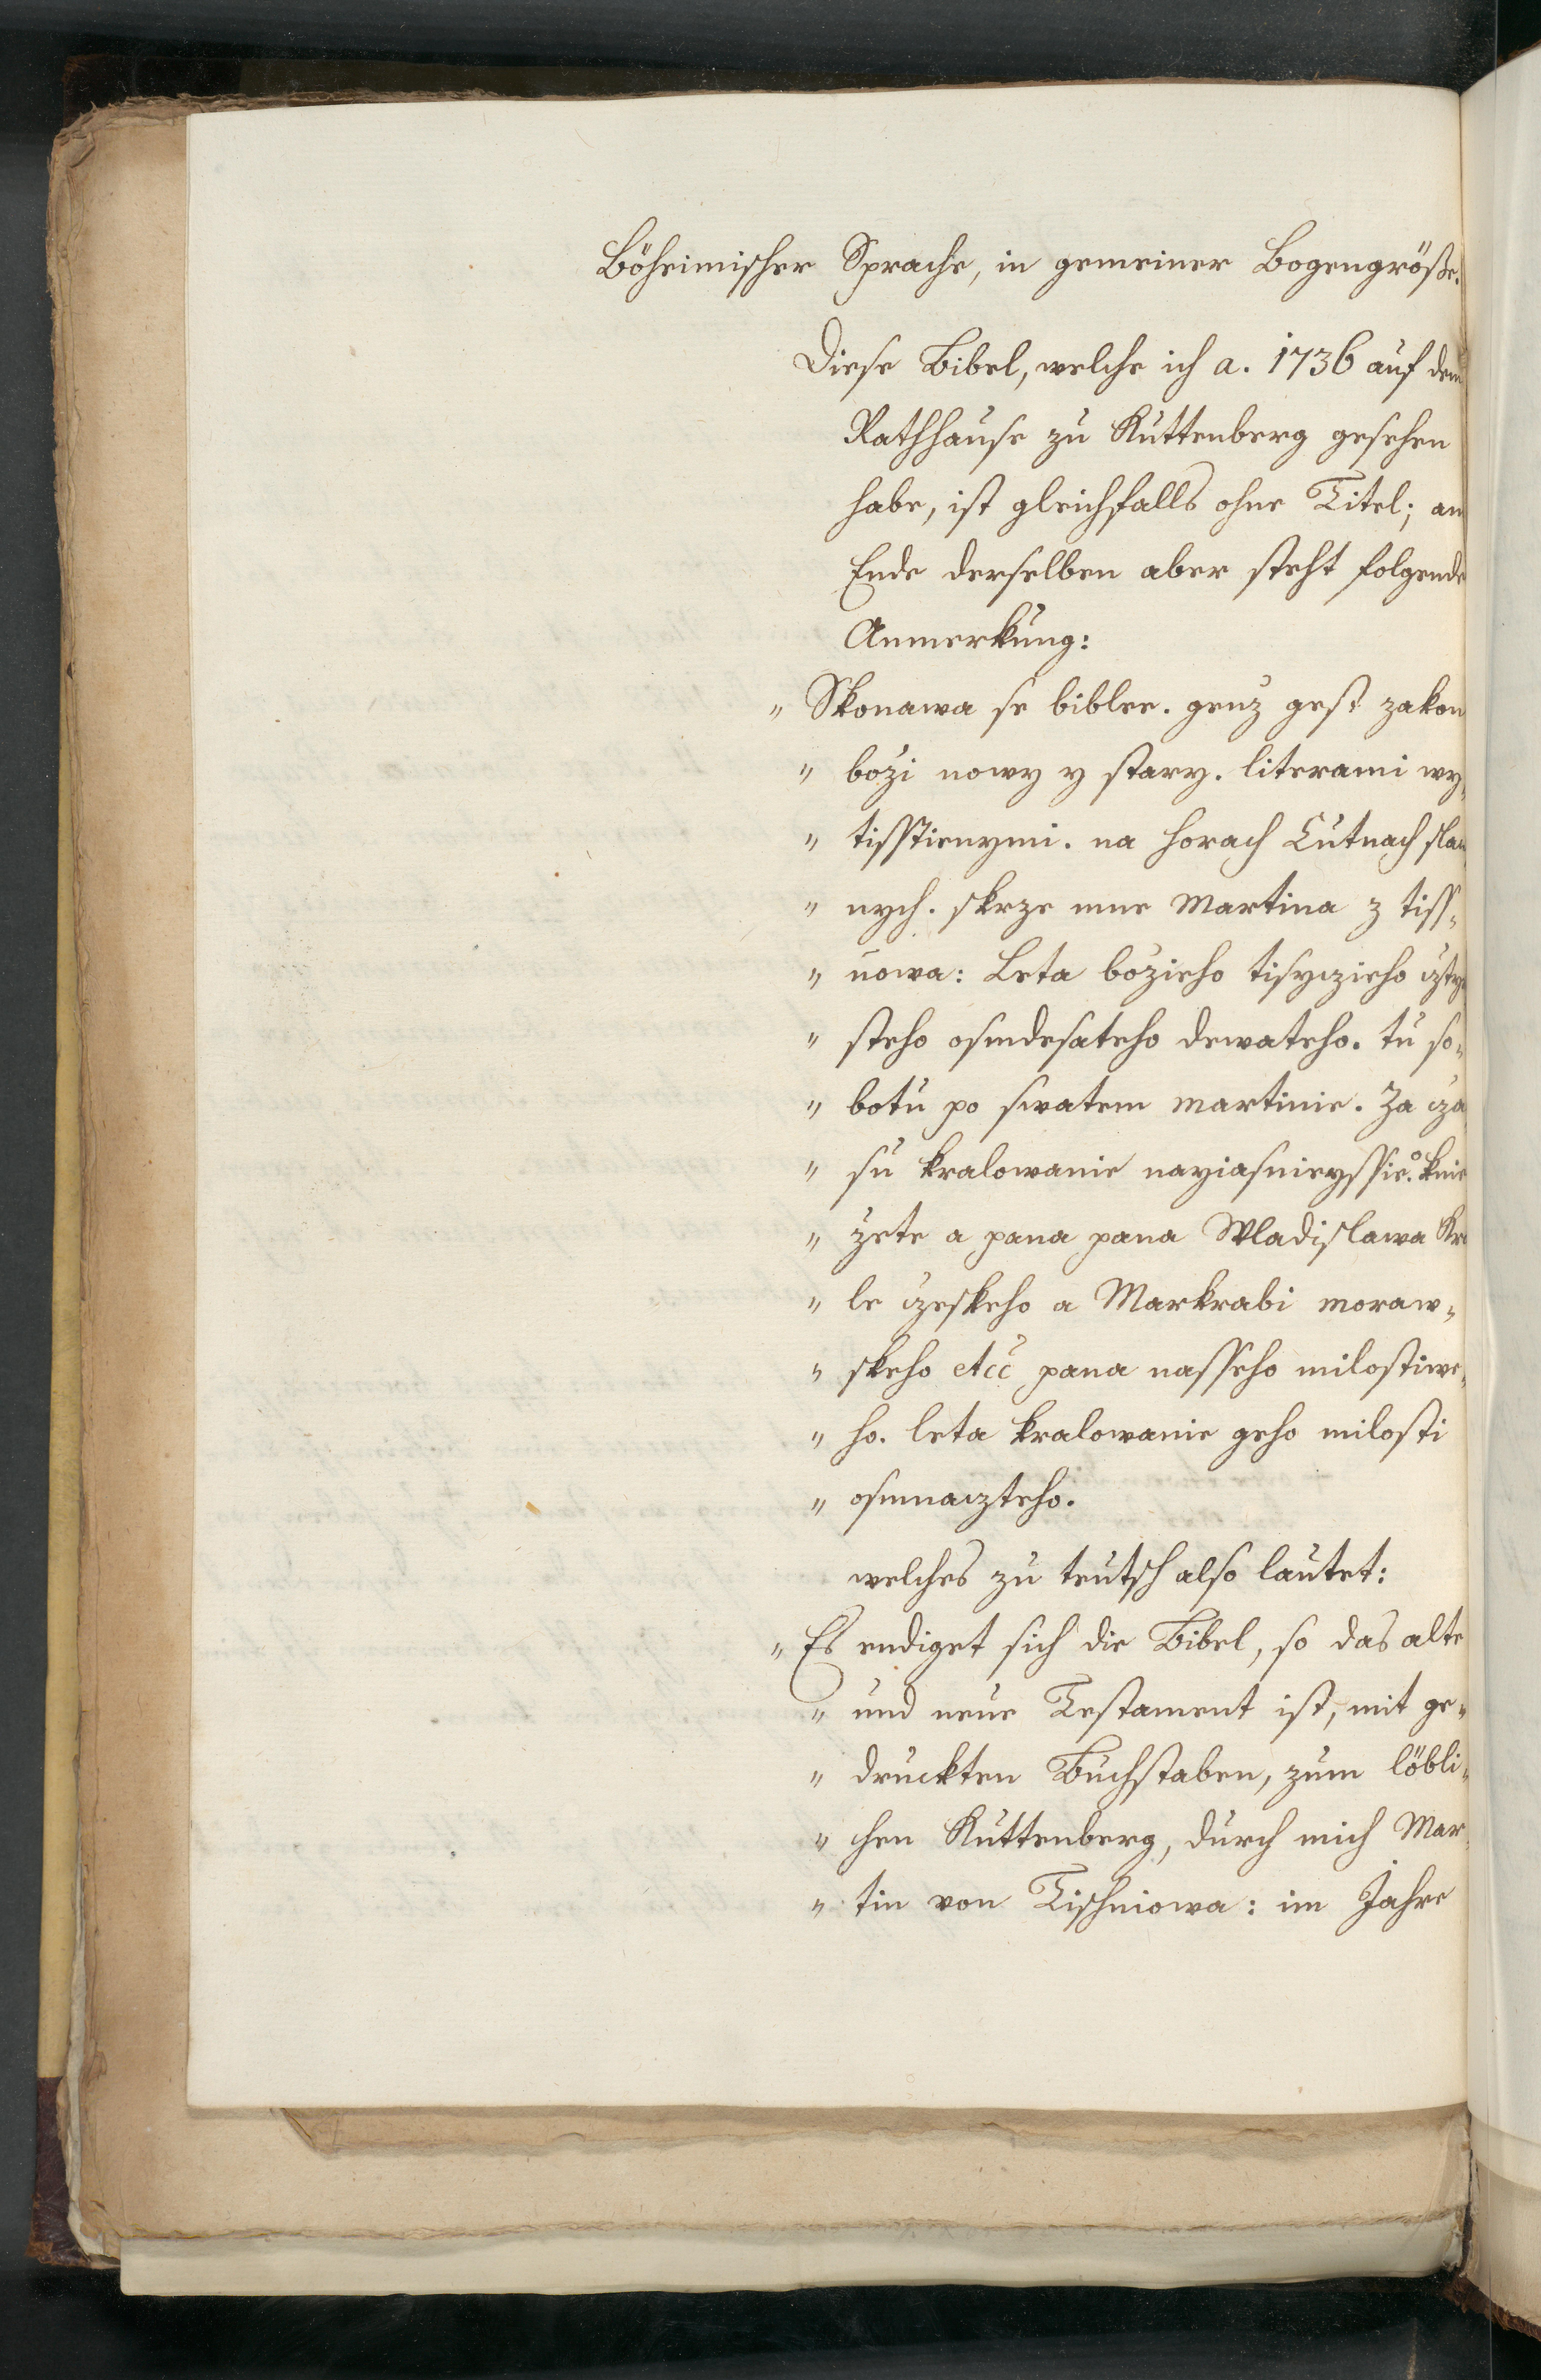 Böheimischer Sprache, in gemeiner Bogengröße.
Diese Bibel, welche ich a. 1736 auf dem
Rathhause zu Kuttenberg gesehen
habe, ist gleichfalls ohne Titel; am
Ende derselben aber steht folgende
Anmerkung:
„ Skonawa se biblee. genz gest zakon
„ bozi nowy y stary. literami wy„
„ tisstienymi. na horach Cutnach slaw
„ nych. skrze mne Martina z tiss„
„ nowa: Leta bozieho tisyczieho cztyr
„ steho osmdesateho dewateho. tu so„
„ botu po swatem martinie. Za cza
„ su kralowanie nayiasnieyssie.o knie
„ zete a pana pana Wladislawa Kra
„ le czeskeho a Markrabi moraw„
„ skeho etcc pana nasseho milostiwe„
„ ho. leta kralowanie geho milosti
„ osmnaczteho.
welches zu teutsch also lautet:
„ Es endiget sich die Bibel, so das alte
„ und neue Testament ist, mit ge„
„ druckten Buchstaben, zum löbli„
„ chen Kuttenberg, durch mich Mar„
„ tin von Tischniowa: im Jahre